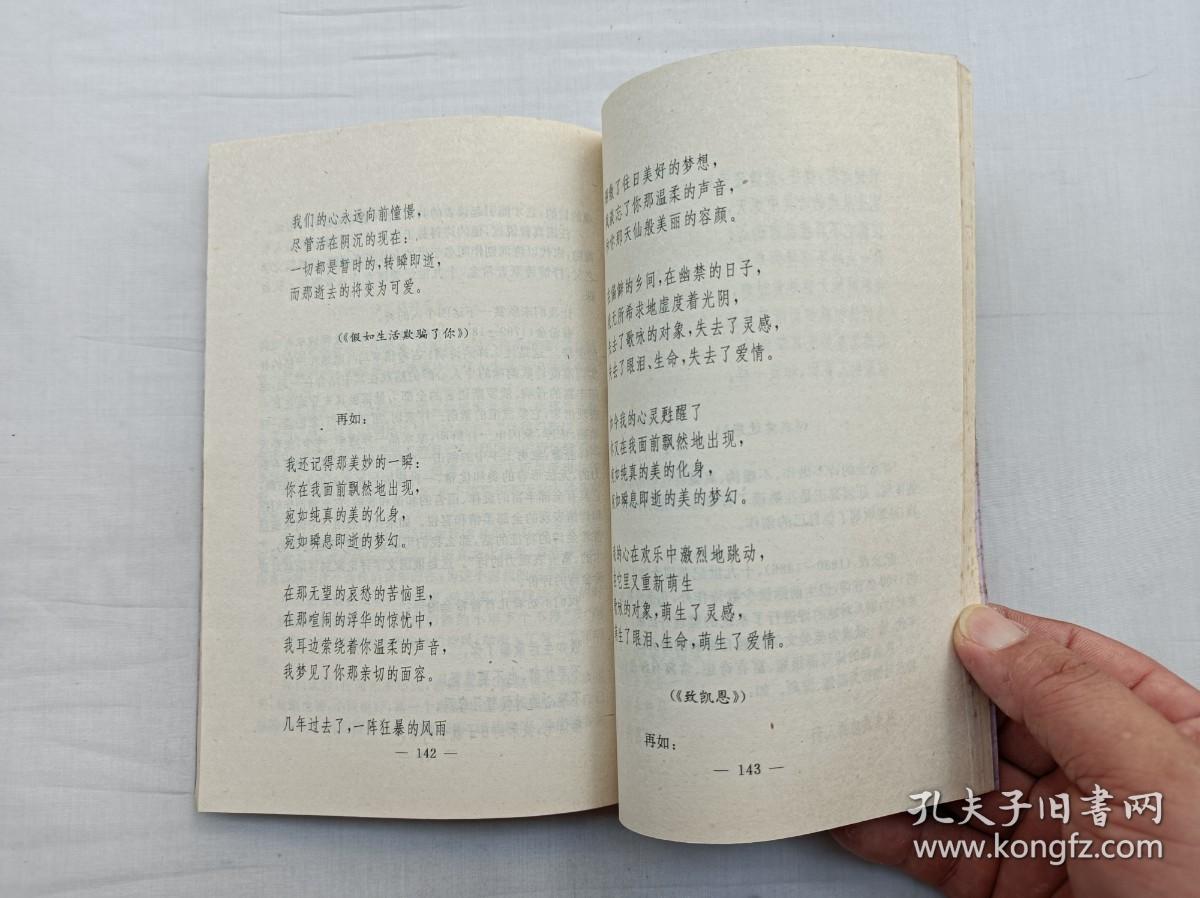 我们的心永远向前憧憬，
尽管活在阴沉的现在：
一切都是暂时的，转瞬即逝，
而那逝去的将变为可爱。
（《假如生活欺骗了你》）
再如：
我还记得那美妙的一瞬：
你在我面前飘然地出现，
宛如纯真的美的化身，
宛如瞬息即逝的梦幻。
在那无望的哀愁的苦恼里，
在那喧闹的浮华的惊忧中，
我耳边萦绕着你温柔的声音，
我梦见了你那亲切的面容。
几年过去了，一阵狂暴的风雨
— 142 —
了往日美好的梦想，
忘了你那温柔的声音，
你那天仙般美丽的容颜。
僻的乡间，在幽禁的日子，
无所希求地虚度着光阴，
去了歌咏的对象，失去了灵感，
去了眼泪、生命，失去了爱情。
今我的心灵甦醒了
又在我面前飘然地出现，
如纯真的美的化身，
如瞬息即逝的美的梦幻。
的心在欢乐中激烈地跳动，
它里又重新萌生
歌咏的对象，萌生了灵感，
生了眼泪、生命，萌生了爱情。
（《致凯恩》）
再如：
— 143 —
孔夫子旧书网
www.kongfz.com